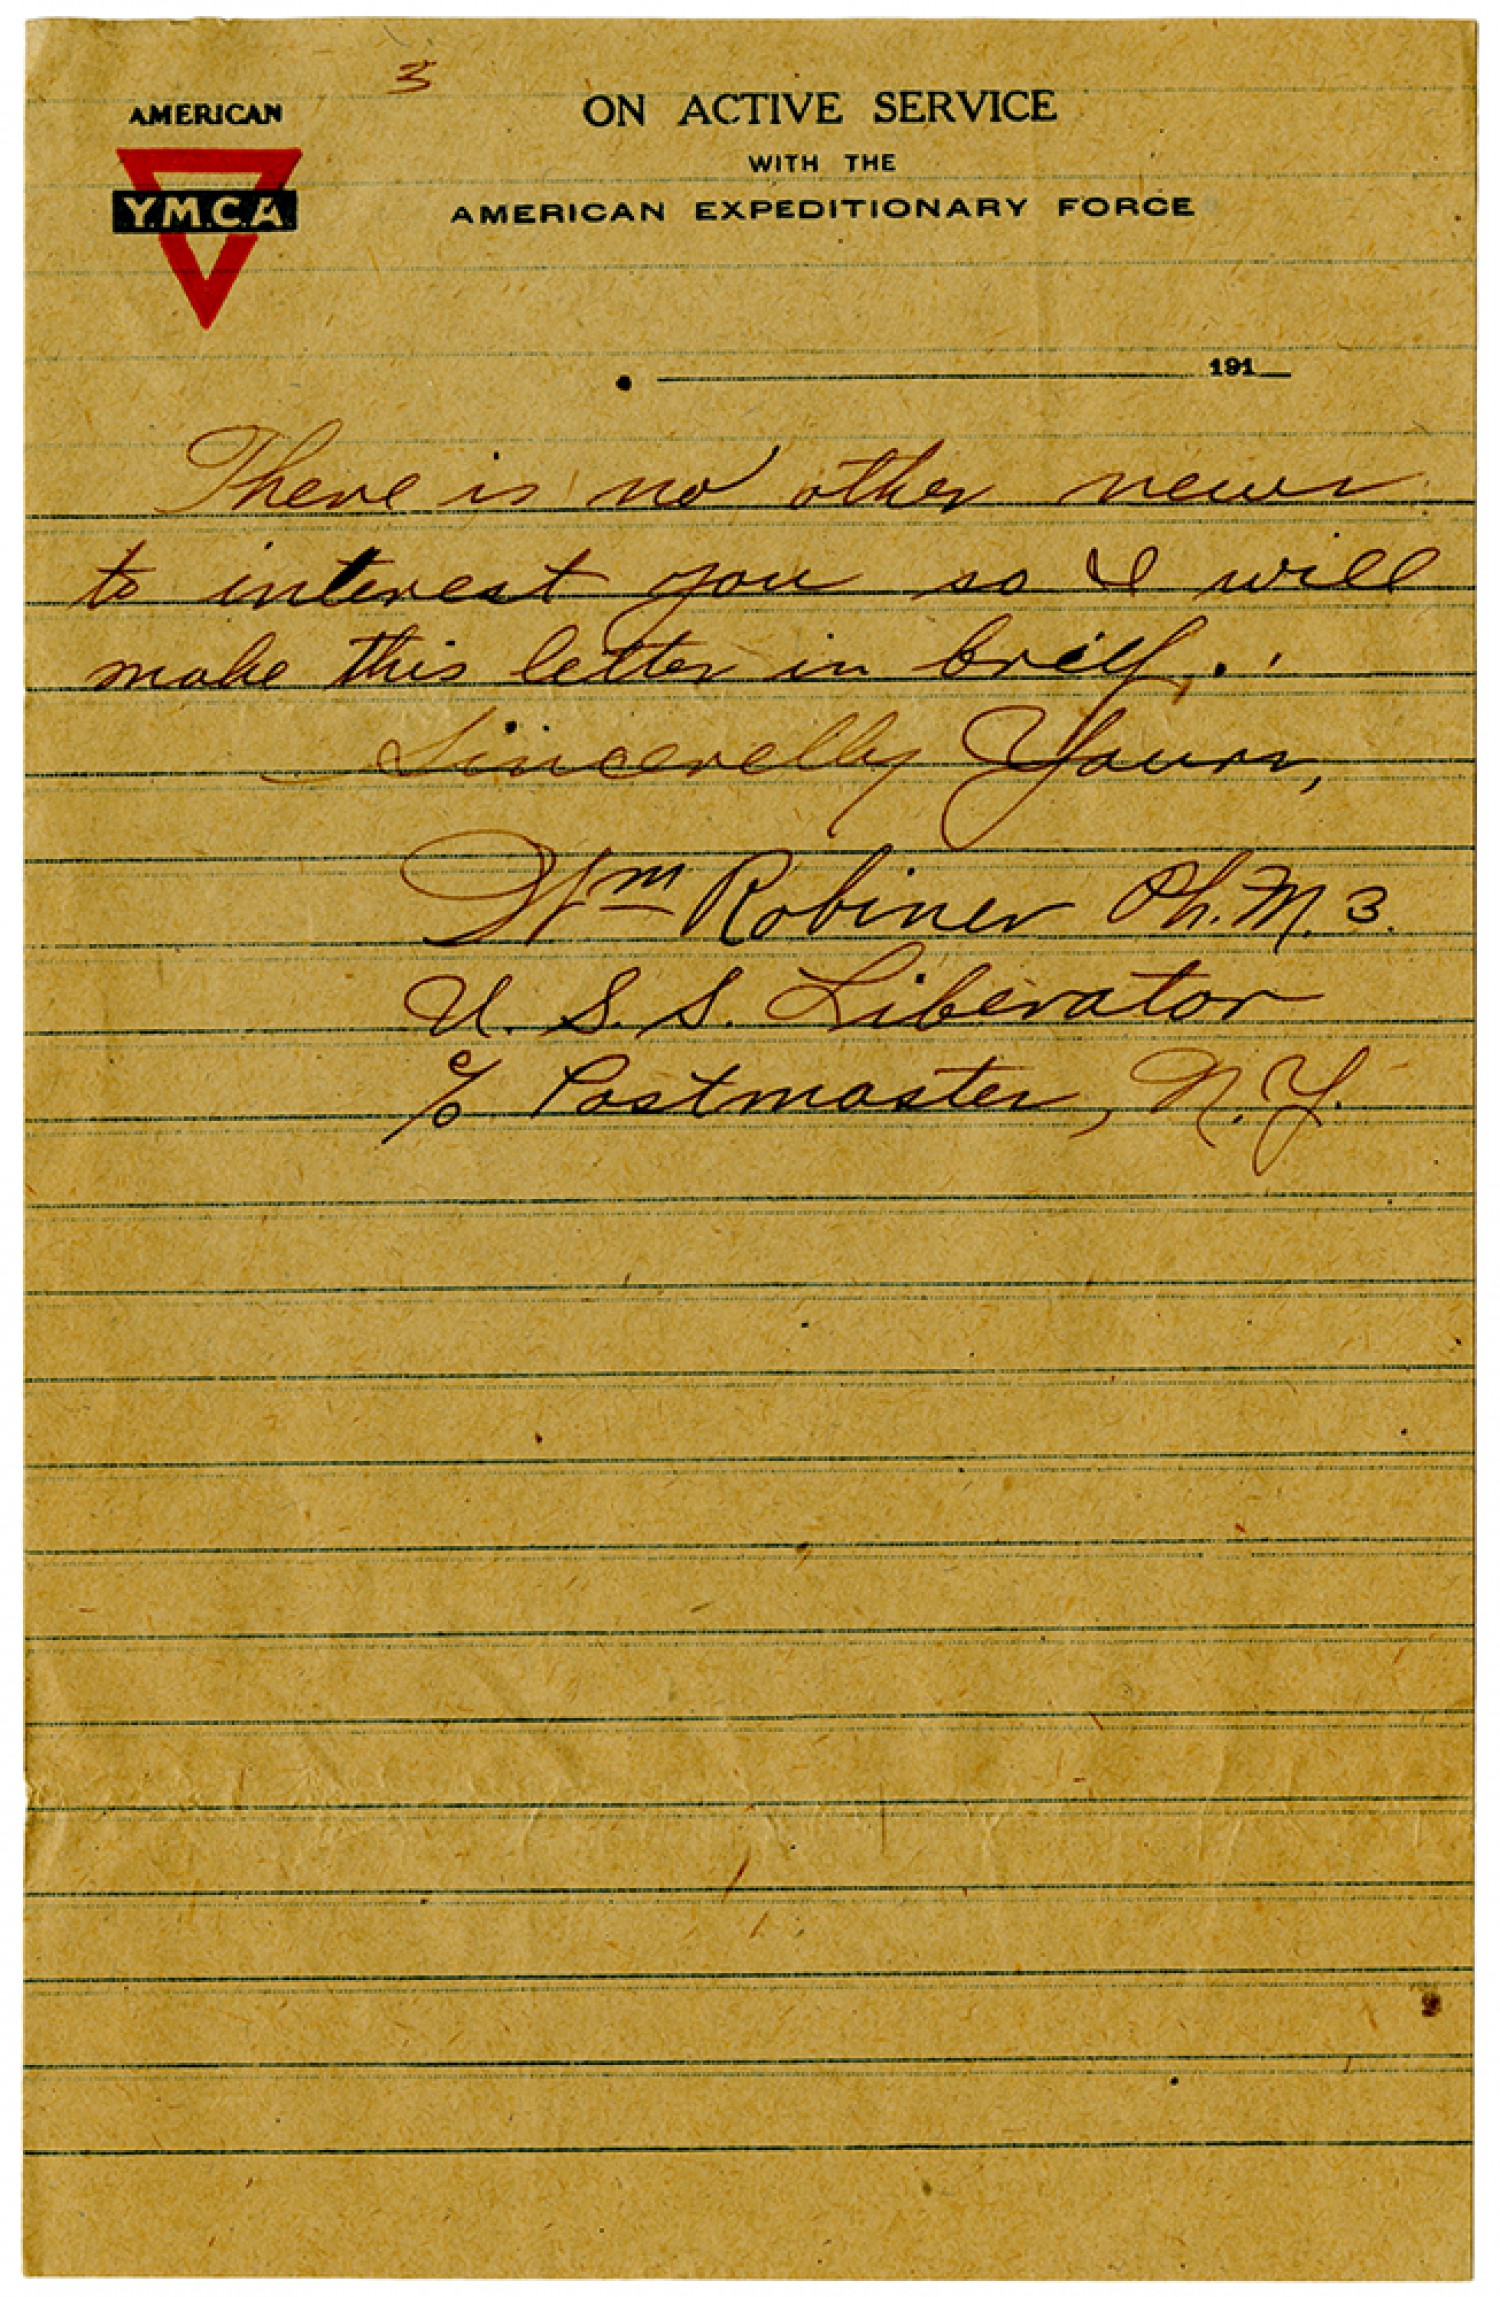 3
AMERICAN
Y.M.C.A.
ON ACTIVE SERVICE
WITH THE
AMERICAN EXPEDITIONARY FORCE
191
There is no other news
to interest you so I will
make this letter in brief.
Sincerelly Yours,
Wm Robiner Ph. M. 3.
U. S. S. Liberator
c/o Postmaster, N. Y.